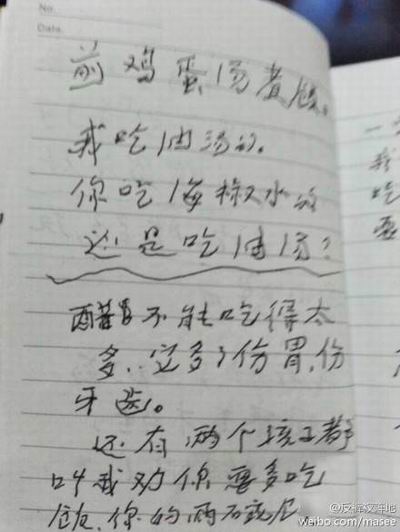 No.
Date.
煎鸡蛋汤煮饭。
我吃油汤的。
你吃海椒水的
还是吃油汤?
醋不能吃得太
多.吃多了伤胃,伤
牙齿。
还有两个孩子都
叫我劝你要多吃
饭.你的两
一
我
吃
@反裤衩阵地
weibo.com/masee